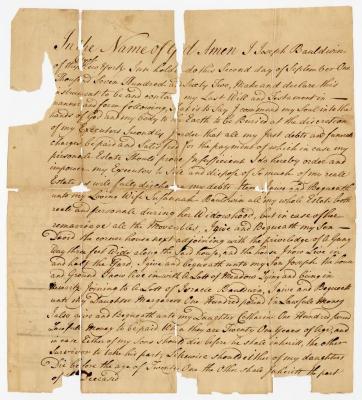 In the Name of God Amen I Joseph Bauldwin
of New York Inn holder do this Second day of September One
Thousand Seven Hundred Sixty Two, Make and declare this
instrument to be and contain my Last Will and Testament in
manner and form following, That is to Say I commend my Soul into the
hands of God and my body to the Earth to be Buried at the discretion
of my Executors Secondly I order that all my just debts and funeral
charges be paid and Satisfied for the payment of which in case my
personale Estate Should prove Insufficient I do hereby order and
impower my Executors to Sell and dispose of So much of my reale
Estate as will fully discharge my debts, Item I give and Bequeath
unto my Loving Wife Susannah Bauldwin all my whole Estate both
reale and personale during her Widowhood, but in case of her
remarriage all the Moveables, I give and Bequeath my Son
David the corner house next adjoining with the priviledge of a Gang
way then feet Wide along the Said house, and the house I now Live in
and half the Yard, I give and bequeath unto my Son Joseph the house
and Ground I now live in with a Lott of Meadow Lying and being in
joining to a Lott of Baldwin, I give and Bequeath
unto my Daughter Margarett One Hundred pound in Lawfull Money
I also give and Bequeath unto my Daughter Catharin One Hundred pound
Lawfull Money to be paid When they are Twenty One Years of Age; and
in case Either of my Sons Should die before he shall inherit, the other
Survivor to take his part, Likewise should either of my daughters
Die before the age of Twenty One the Other shall inherit the part
of the Deceased